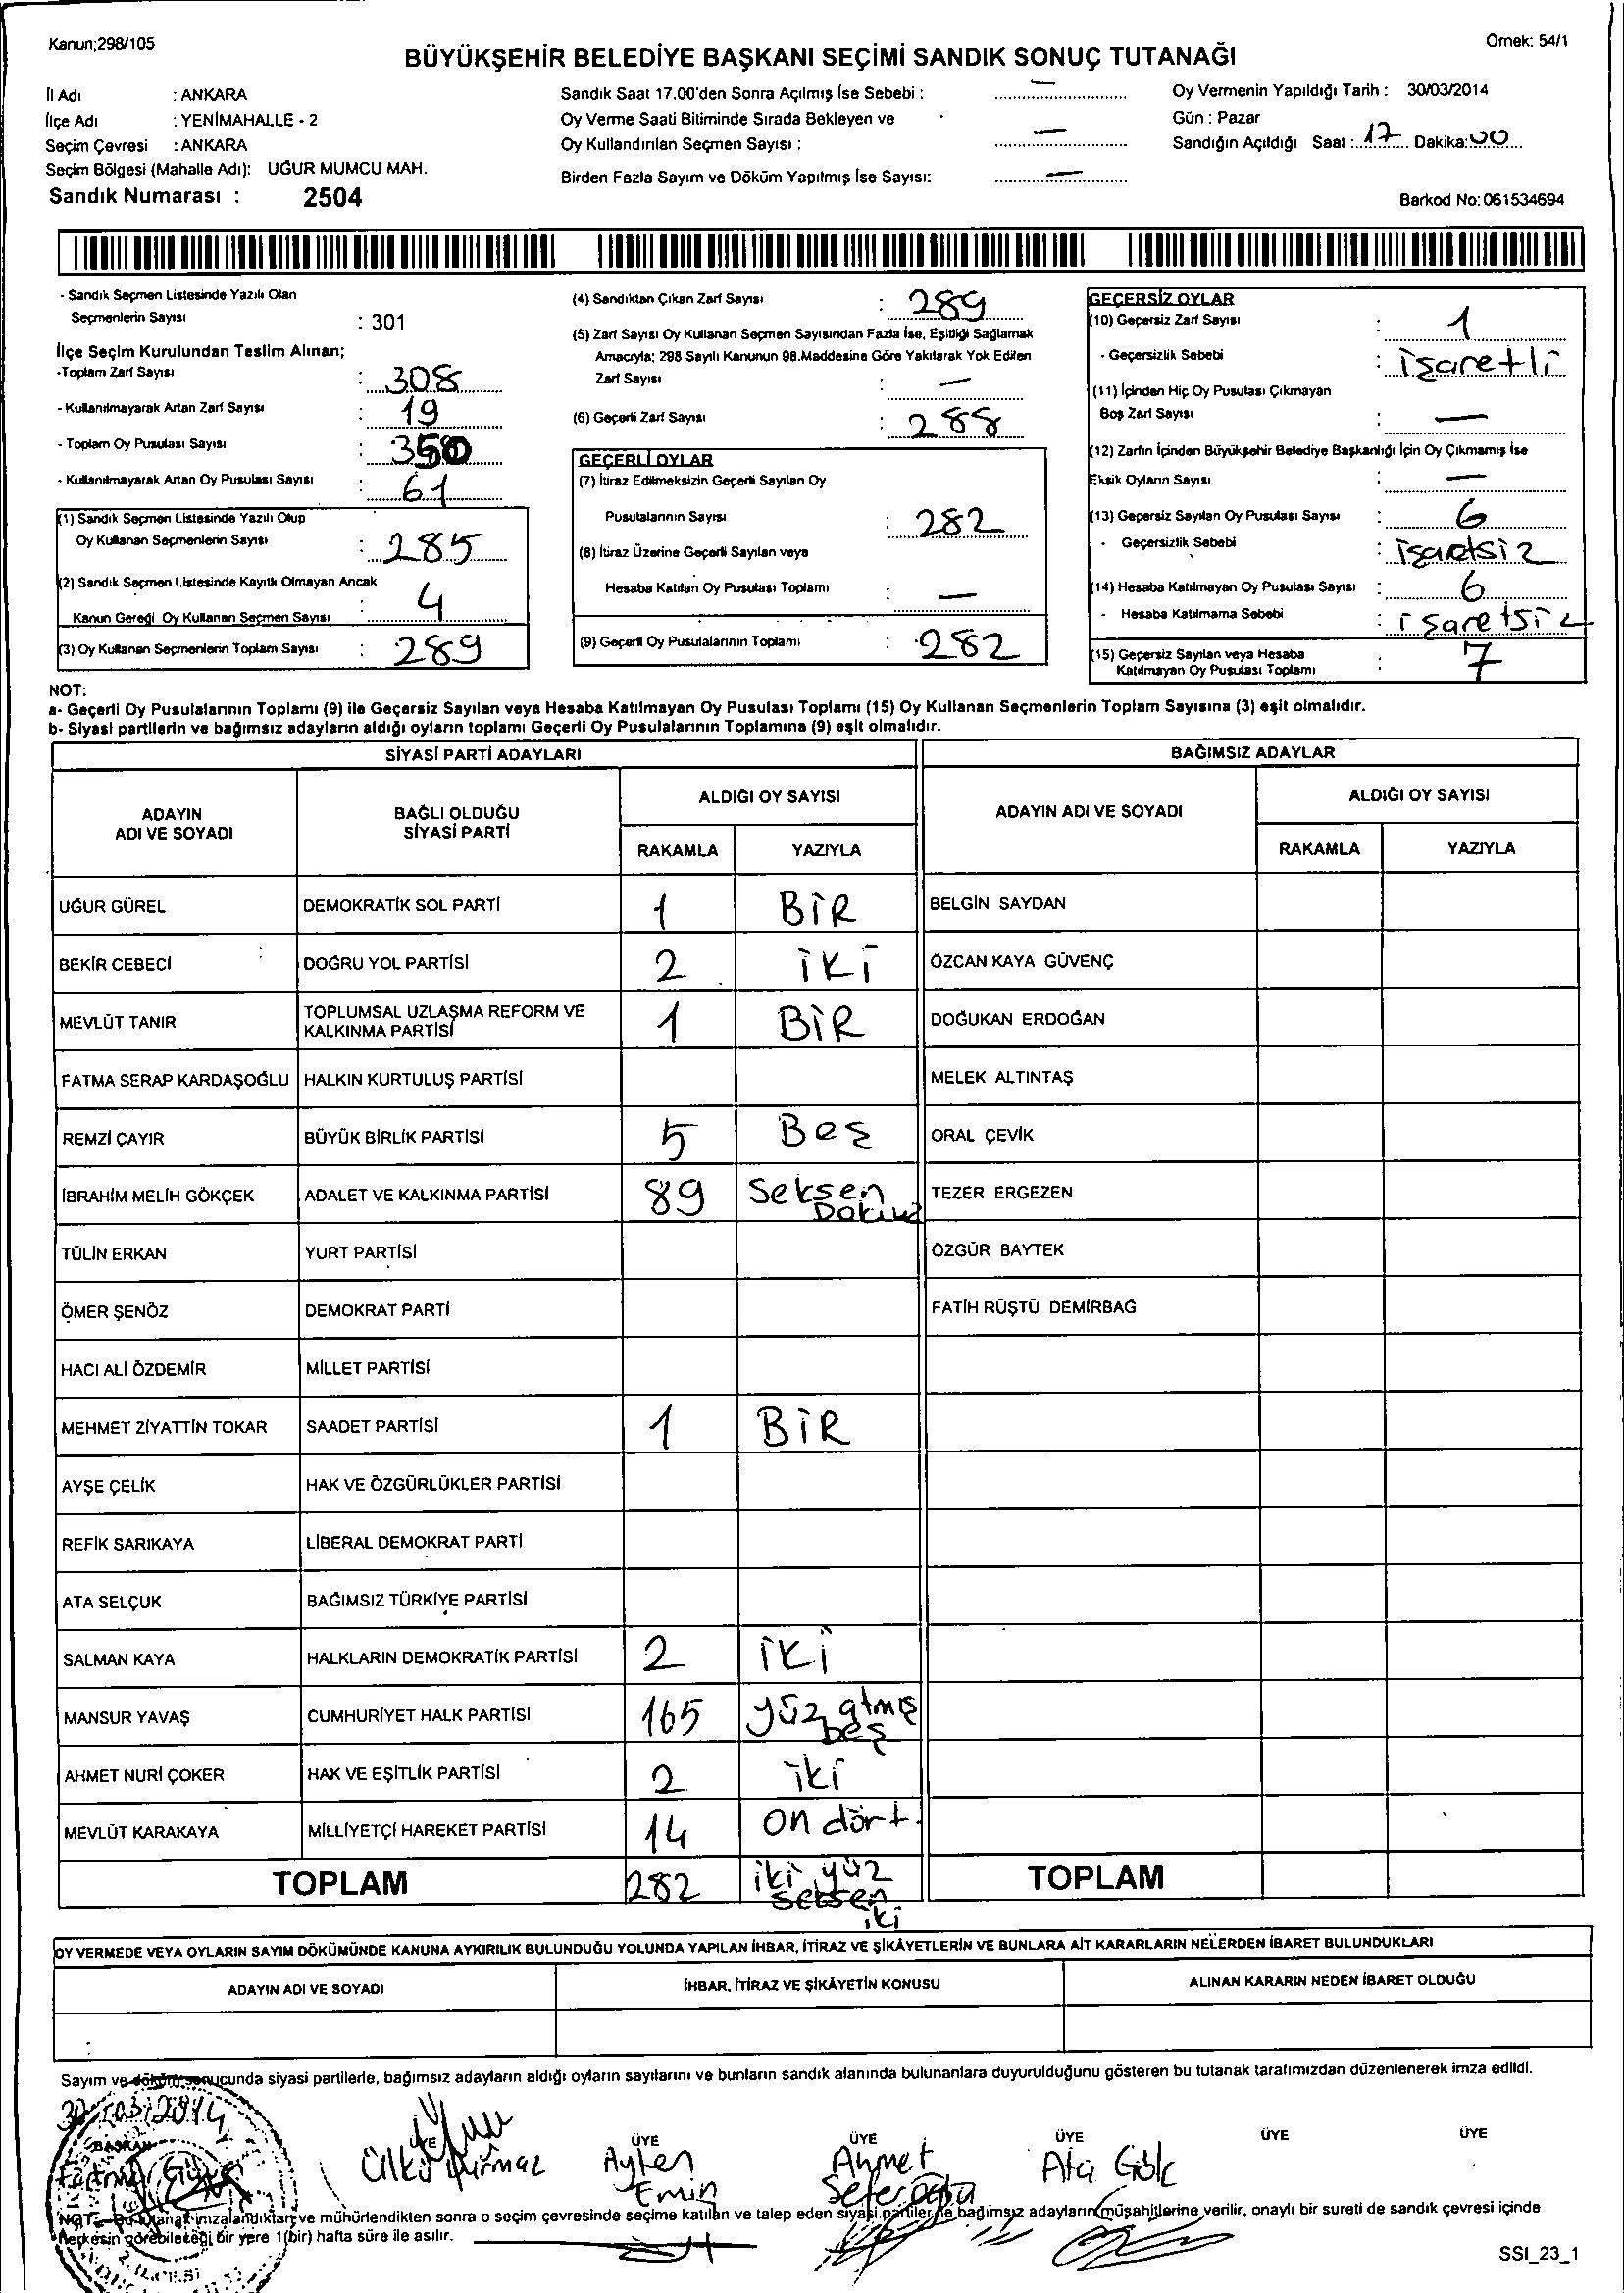 Kanun;298/105
Örnek: 54/1
BÜYÜKŞEHİR BELEDİYE BAŞKANI SEÇİMİ SANDIK SONUÇ TUTANAĞI
İl Adı : ANKARA
İlçe Adı : YENİMAHALLE - 2
Seçim Çevresi : ANKARA
Seçim Bölgesi (Mahalle Adı): UĞUR MUMCU MAH.
Sandık Numarası : 2504
Sandık Saat 17.00'den Sonra Açılmış İse Sebebi : —
Oy Verme Saati Bitiminde Sırada Bekleyen ve
Oy Kullandırılan Seçmen Sayısı : —
Birden Fazla Sayım ve Döküm Yapılmış İse Sayısı: —
Oy Vermenin Yapıldığı Tarih : 30/03/2014
Gün : Pazar
Sandığın Açıldığı Saat : 17 Dakika: 00
Barkod No: 061534694
- Sandık Seçmen Listesinde Yazılı Olan
Seçmenlerin Sayısı : 301
İlçe Seçim Kurulundan Teslim Alınan;
-Toplam Zarf Sayısı : 308
- Kullanılmayarak Artan Zarf Sayısı : 19
- Toplam Oy Pusulası Sayısı : 350
- Kullanılmayarak Artan Oy Pusulası Sayısı : 61
(1) Sandık Seçmen Listesinde Yazılı Olup
Oy Kullanan Seçmenlerin Sayısı : 285
(2) Sandık Seçmen Listesinde Kayıtlı Olmayan Ancak
Kanun Gereği Oy Kullanan Seçmen Sayısı : 4
(3) Oy Kullanan Seçmenlerin Toplam Sayısı : 289
(4) Sandıktan Çıkan Zarf Sayısı : 289
(5) Zarf Sayısı Oy Kullanan Seçmen Sayısından Fazla İse, Eşitliği Sağlamak
Amacıyla; 298 Sayılı Kanunun 98.Maddesine Göre Yakılarak Yok Edilen
Zarf Sayısı : —
(6) Geçerli Zarf Sayısı : 288
GEÇERLİ OYLAR
(7) İtiraz Edilmeksizin Geçerli Sayılan Oy
Pusulalarının Sayısı : 282
(8) İtiraz Üzerine Geçerli Sayılan veya
Hesaba Katılan Oy Pusulası Toplamı : —
(9) Geçerli Oy Pusulalarının Toplamı : 282
GEÇERSİZ OYLAR
(10) Geçersiz Zarf Sayısı : 1
- Geçersizlik Sebebi : işaretli
(11) İçinden Hiç Oy Pusulası Çıkmayan
Boş Zarf Sayısı : —
(12) Zarfın İçinden Büyükşehir Belediye Başkanlığı İçin Oy Çıkmamış İse
Eksik Oyların Sayısı : —
(13) Geçersiz Sayılan Oy Pusulası Sayısı : 6
- Geçersizlik Sebebi : işaretsiz
(14) Hesaba Katılmayan Oy Pusulası Sayısı : 6
- Hesaba Katılmama Sebebi : işaretsiz
(15) Geçersiz Sayılan veya Hesaba
Katılmayan Oy Pusulası Toplamı : 7
NOT:
a- Geçerli Oy Pusulalarının Toplamı (9) ile Geçersiz Sayılan veya Hesaba Katılmayan Oy Pusulası Toplamı (15) Oy Kullanan Seçmenlerin Toplam Sayısına (3) eşit olmalıdır.
b- Siyasi partilerin ve bağımsız adayların aldığı oyların toplamı Geçerli Oy Pusulalarının Toplamına (9) eşit olmalıdır.
SİYASİ PARTİ ADAYLARI
BAĞIMSIZ ADAYLAR
ADAYIN ADI VE SOYADI
BAĞLI OLDUĞU SİYASİ PARTİ
ALDIĞI OY SAYISI
RAKAMLA YAZIYLA
ADAYIN ADI VE SOYADI
ALDIĞI OY SAYISI
RAKAMLA YAZIYLA
UĞUR GÜREL DEMOKRATİK SOL PARTİ 1 BİR BELGİN SAYDAN
BEKİR CEBECİ DOĞRU YOL PARTİSİ 2 İKİ ÖZCAN KAYA GÜVENÇ
MEVLÜT TANIR TOPLUMSAL UZLAŞMA REFORM VE KALKINMA PARTİSİ 1 BİR DOĞUKAN ERDOĞAN
FATMA SERAP KARDAŞOĞLU HALKIN KURTULUŞ PARTİSİ MELEK ALTINTAŞ
REMZİ ÇAYIR BÜYÜK BİRLİK PARTİSİ 5 Beş ORAL ÇEVİK
İBRAHİM MELİH GÖKÇEK ADALET VE KALKINMA PARTİSİ 89 Seksen Dokuz TEZER ERGEZEN
TÜLİN ERKAN YURT PARTİSİ ÖZGÜR BAYTEK
ÖMER ŞENÖZ DEMOKRAT PARTİ FATİH RÜŞTÜ DEMİRBAĞ
HACI ALİ ÖZDEMİR MİLLET PARTİSİ
MEHMET ZİYATTİN TOKAR SAADET PARTİSİ 1 BİR
AYŞE ÇELİK HAK VE ÖZGÜRLÜKLER PARTİSİ
REFİK SARIKAYA LİBERAL DEMOKRAT PARTİ
ATA SELÇUK BAĞIMSIZ TÜRKİYE PARTİSİ
SALMAN KAYA HALKLARIN DEMOKRATİK PARTİSİ 2 İKİ
MANSUR YAVAŞ CUMHURİYET HALK PARTİSİ 165 yüz atmış beş
AHMET NURİ ÇOKER HAK VE EŞİTLİK PARTİSİ 2 iki
MEVLÜT KARAKAYA MİLLİYETÇİ HAREKET PARTİSİ 14 on dört
TOPLAM 282 iki yüz seksen iki TOPLAM
OY VERMEDE VEYA OYLARIN SAYIM DÖKÜMÜNDE KANUNA AYKIRILIK BULUNDUĞU YOLUNDA YAPILAN İHBAR, İTİRAZ VE ŞİKÂYETLERİN VE BUNLARA AİT KARARLARIN NELERDEN İBARET BULUNDUKLARI
ADAYIN ADI VE SOYADI İHBAR, İTİRAZ VE ŞİKÂYETİN KONUSU ALINAN KARARIN NEDEN İBARET OLDUĞU
Sayım ve döküm sonucunda siyasi partilerle, bağımsız adayların aldığı oyların sayılarını ve bunların sandık alanında bulunanlara duyurulduğunu gösteren bu tutanak tarafımızdan düzenlenerek imza edildi.
30/03/2014
BAŞKAN ÜYE ÜYE ÜYE ÜYE ÜYE ÜYE
Ülkü Durmaz Ayten Emin Ahmet Ata Gök
NOT: Bu tutanak imzalandıktan ve mühürlendikten sonra o seçim çevresinde seçime katılan ve talep eden siyasi partiler ile bağımsız adayların müşahitlerine verilir, onaylı bir sureti de sandık çevresi içinde
herkesin görebileceği bir yere 1(bir) hafta süre ile asılır.
SSI_23_1